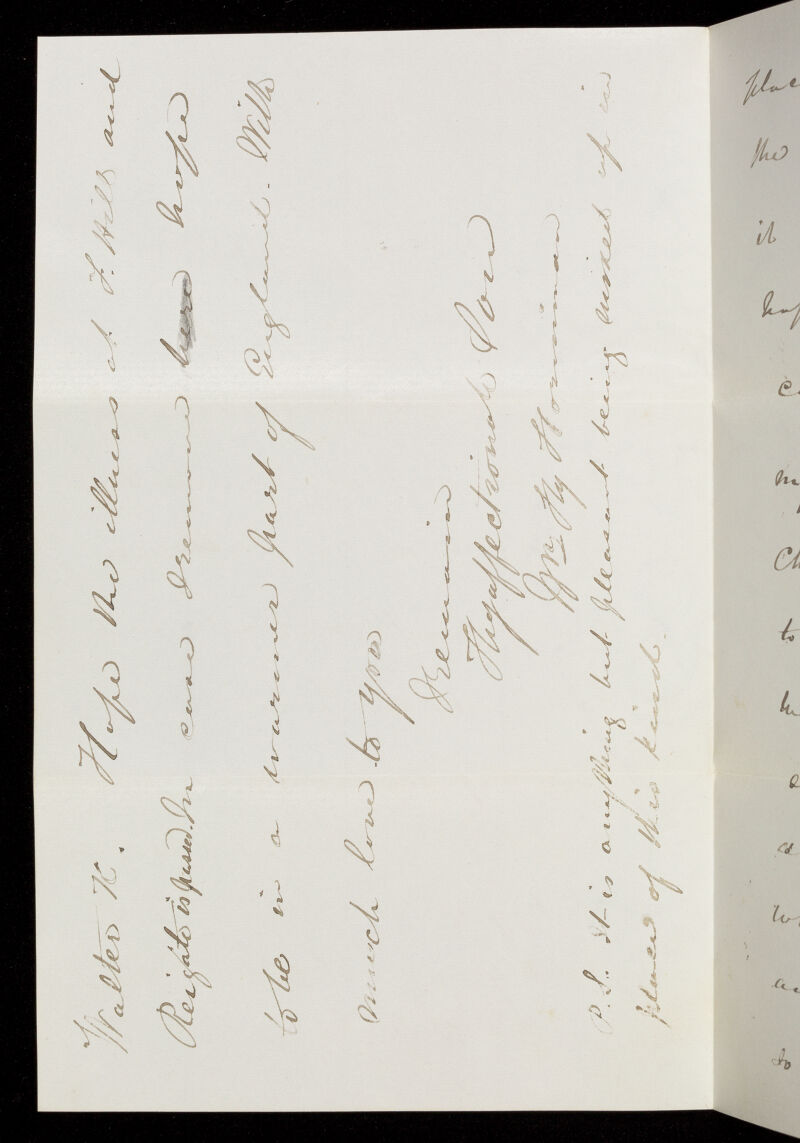 Walter K. Hope the illness at F. Hill and
Reigate is passed. In case I remove here hope
to be in a warmer part of England. With
much love to you
I remain
Thy affectionate Son
Wm. Hy Horniman
P.S. It is anything but pleasant being mixed up in
places of this kind.
plac
the
it
hop
c
m
Ch
to
h
a
to